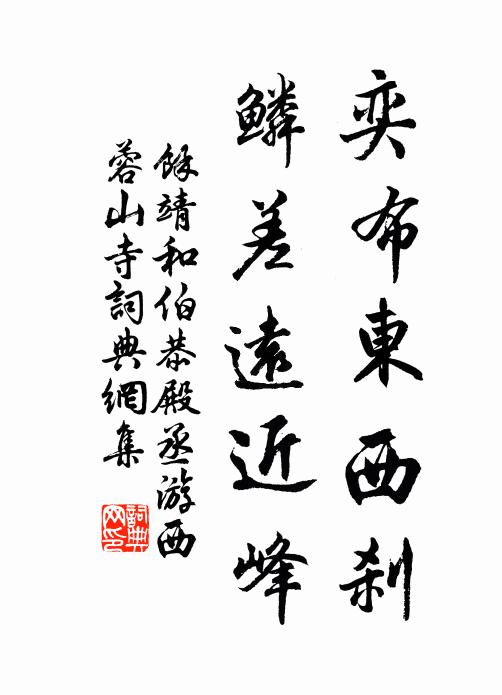 奕布東西刹
鱗差遠近峰
餘靖和伯恭殿丞游西
蓉山寺詞典網集
詞典
网印